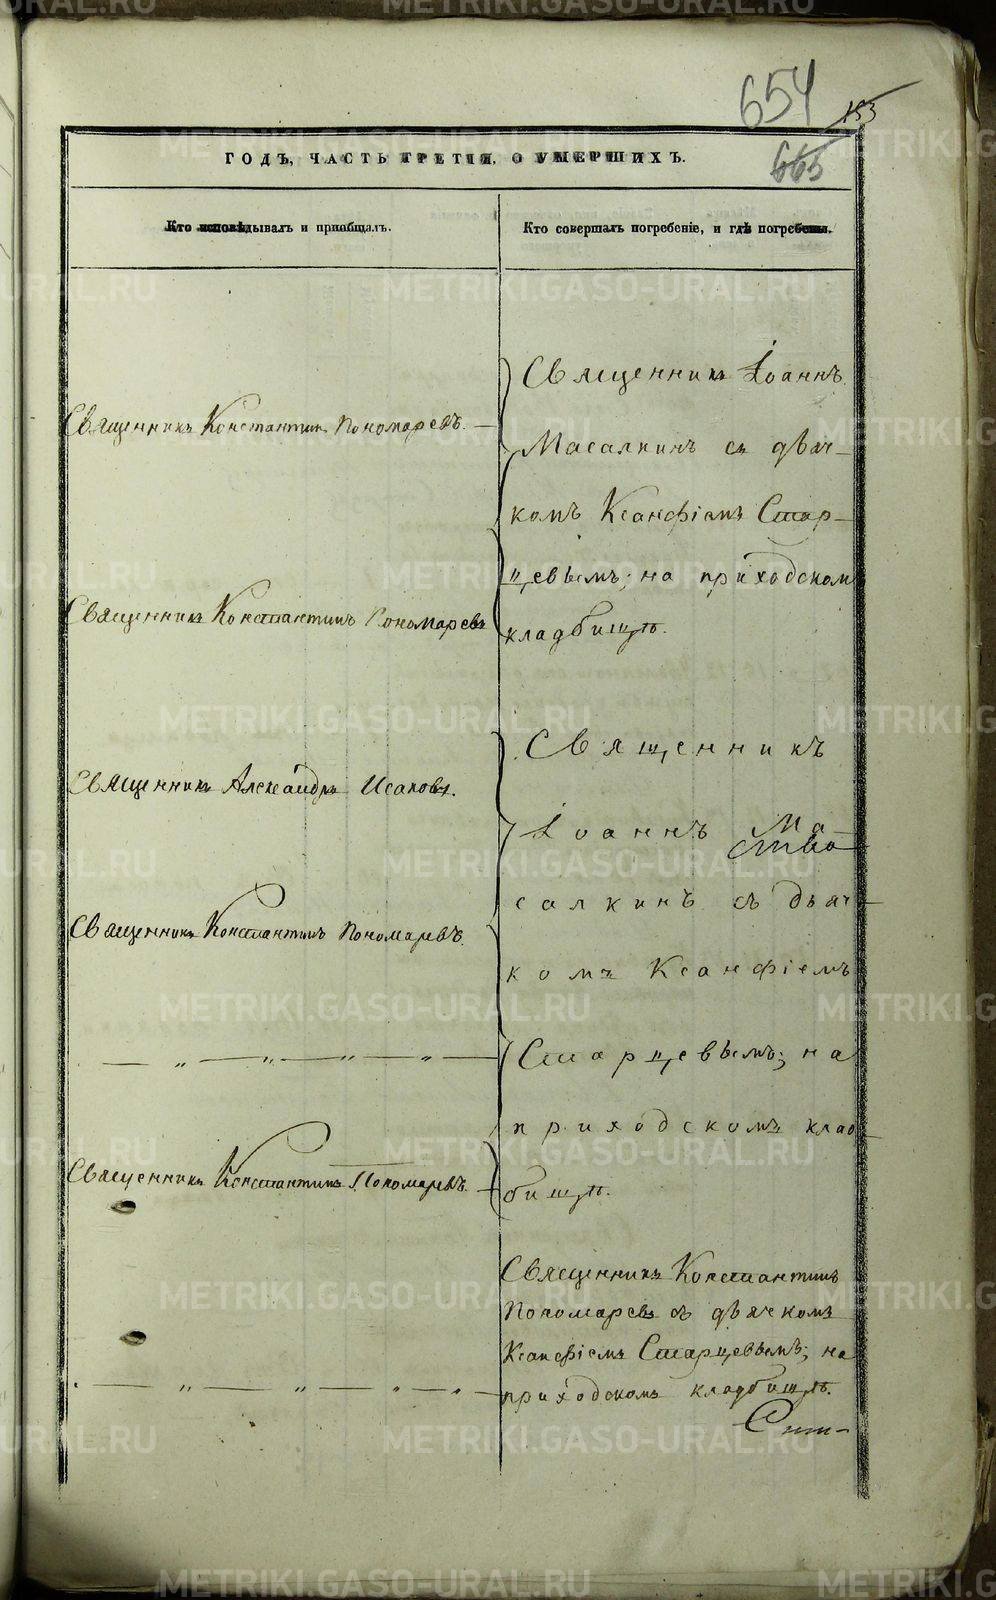 654
153
665
ГОДЪ, ЧАСТЬ ТРЕТІЯ, О УМЕРШИХЪ.
Кто исповѣдывалъ и пріобщалъ.
Кто совершалъ погребеніе, и гдѣ погребены.
Священникъ Константинъ Пономаревъ.
Священникъ Константинъ Пономаревъ
Священникъ Александръ Исаковъ.
Священникъ Константинъ Пономаревъ.
— „ — „ — „ — „ —
Священникъ Константинъ Пономаревъ.
— „ — „ — „ — „ —
Священникъ Іоаннъ
Масалкинъ съ дьяч-
комъ Ксанфіемъ Стар-
цевымъ; на приходскомъ
кладбищѣ.
Священникъ
Іоаннъ Ма-
салкинъ съ дьяч-
комъ Ксанфіемъ
Старцевымъ; на
приходскомъ клад-
бищѣ.
Священникъ Константинъ
Пономаревъ съ дьячкомъ
Ксанфіемъ Старцевымъ; на
приходскомъ кладбищѣ.
METRIKI.GASO-URAL.RU